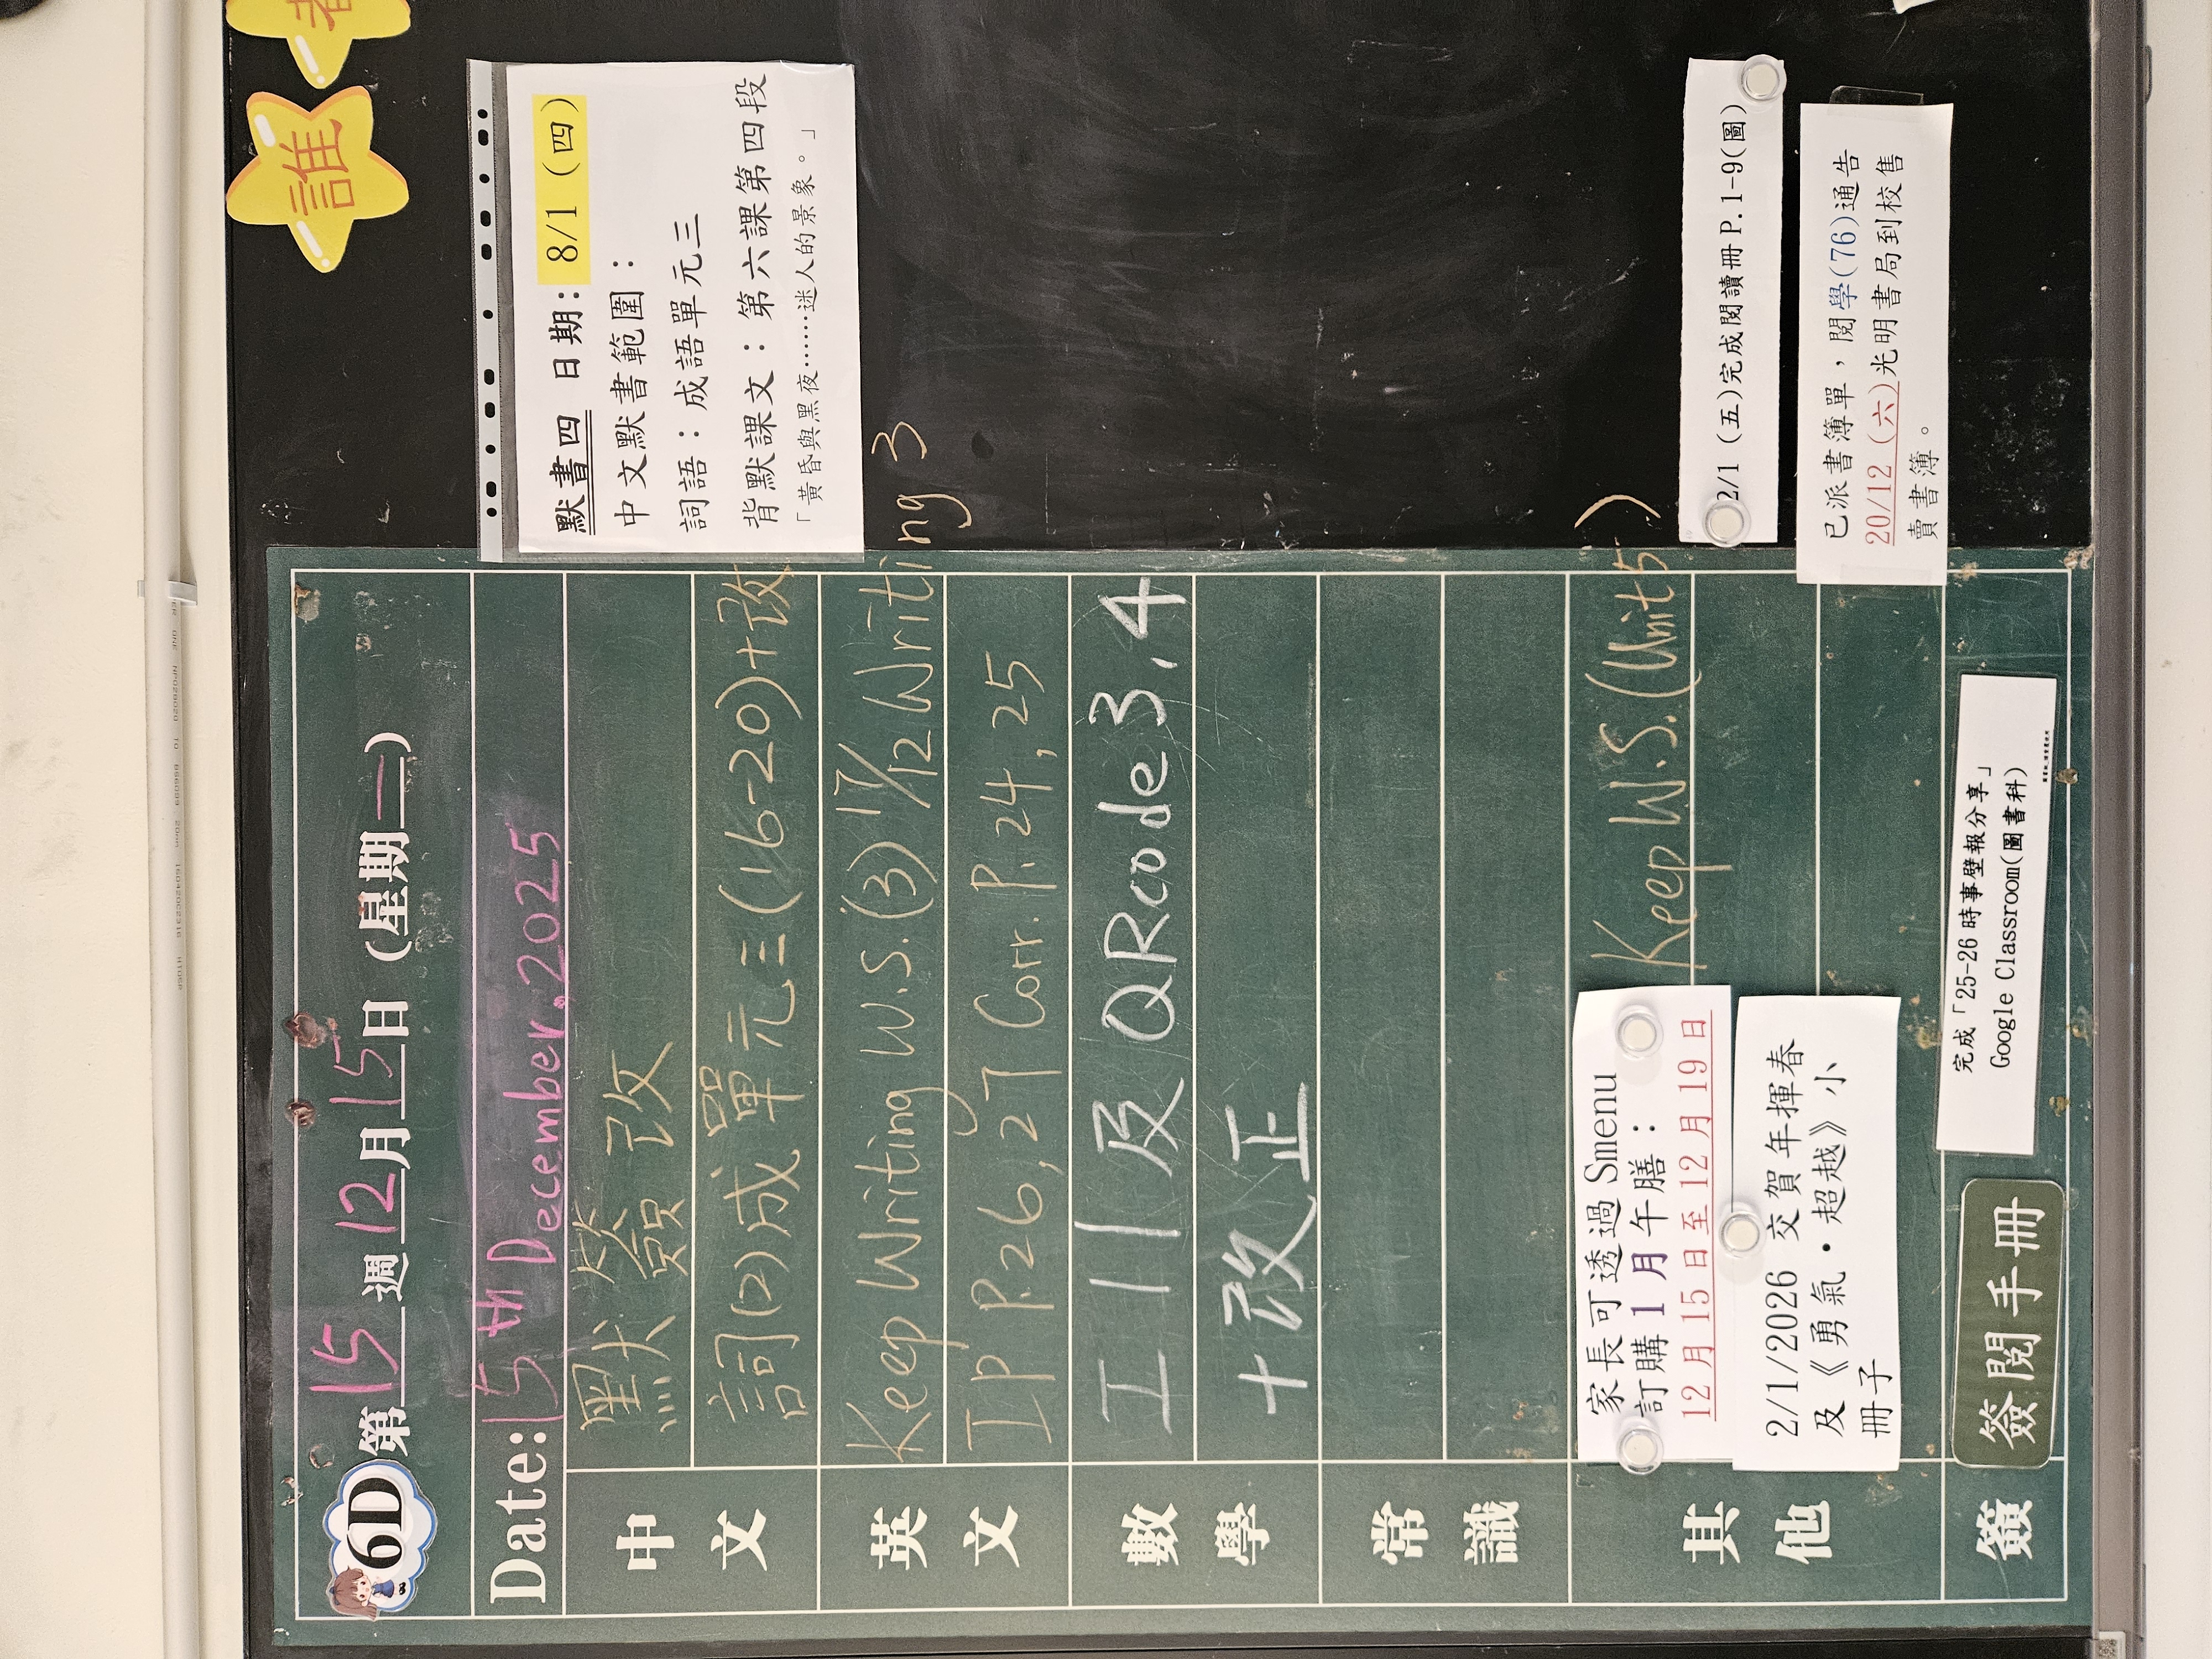 誰
6D 第15週12月15日(星期一)
Date: 15th December, 2025
中文
默簽改
詞(2)成單元三(16-20)+改
英文
Keep Writing W.S.(3) 17/12 Writing 3
IP P.26,27 Corr. P.24,25
數學
工11及QRcode 3,4
+改正
常識
其他
家長可透過 Smenu
訂購 1 月午膳:
12月15日至12月19日
Keep W.S.(Unit 5)
2/1/2026 交賀年揮春
及《勇氣•超越》小
冊子
簽
簽閱手冊
完成「25-26 時事壁報分享」
Google Classroom(圖書科)
默書四 日期: 8/1 (四)
中文默書範圍:
詞語:成語單元三
背默課文:第六課第四段
「黃昏與黑夜……迷人的景象。」
2/1 (五)完成閱讀冊P.1-9(圖)
已派書簿單,閱學(76)通告
20/12 (六)光明書局到校售
賣書簿。